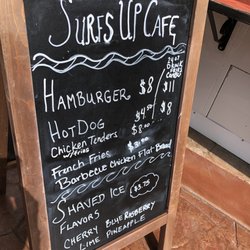 SURFS UP CAFE
HAMBURGER $8 $11
HOTDOG $4.50 $8
Chicken Tenders $8.00
w/fries
French Fries
Barbecue Chicken Flat Bread
SHAVED ICE $3.75
FLAVORS
CHERRY BLUE RASBERRY
LIME PINEAPPLE